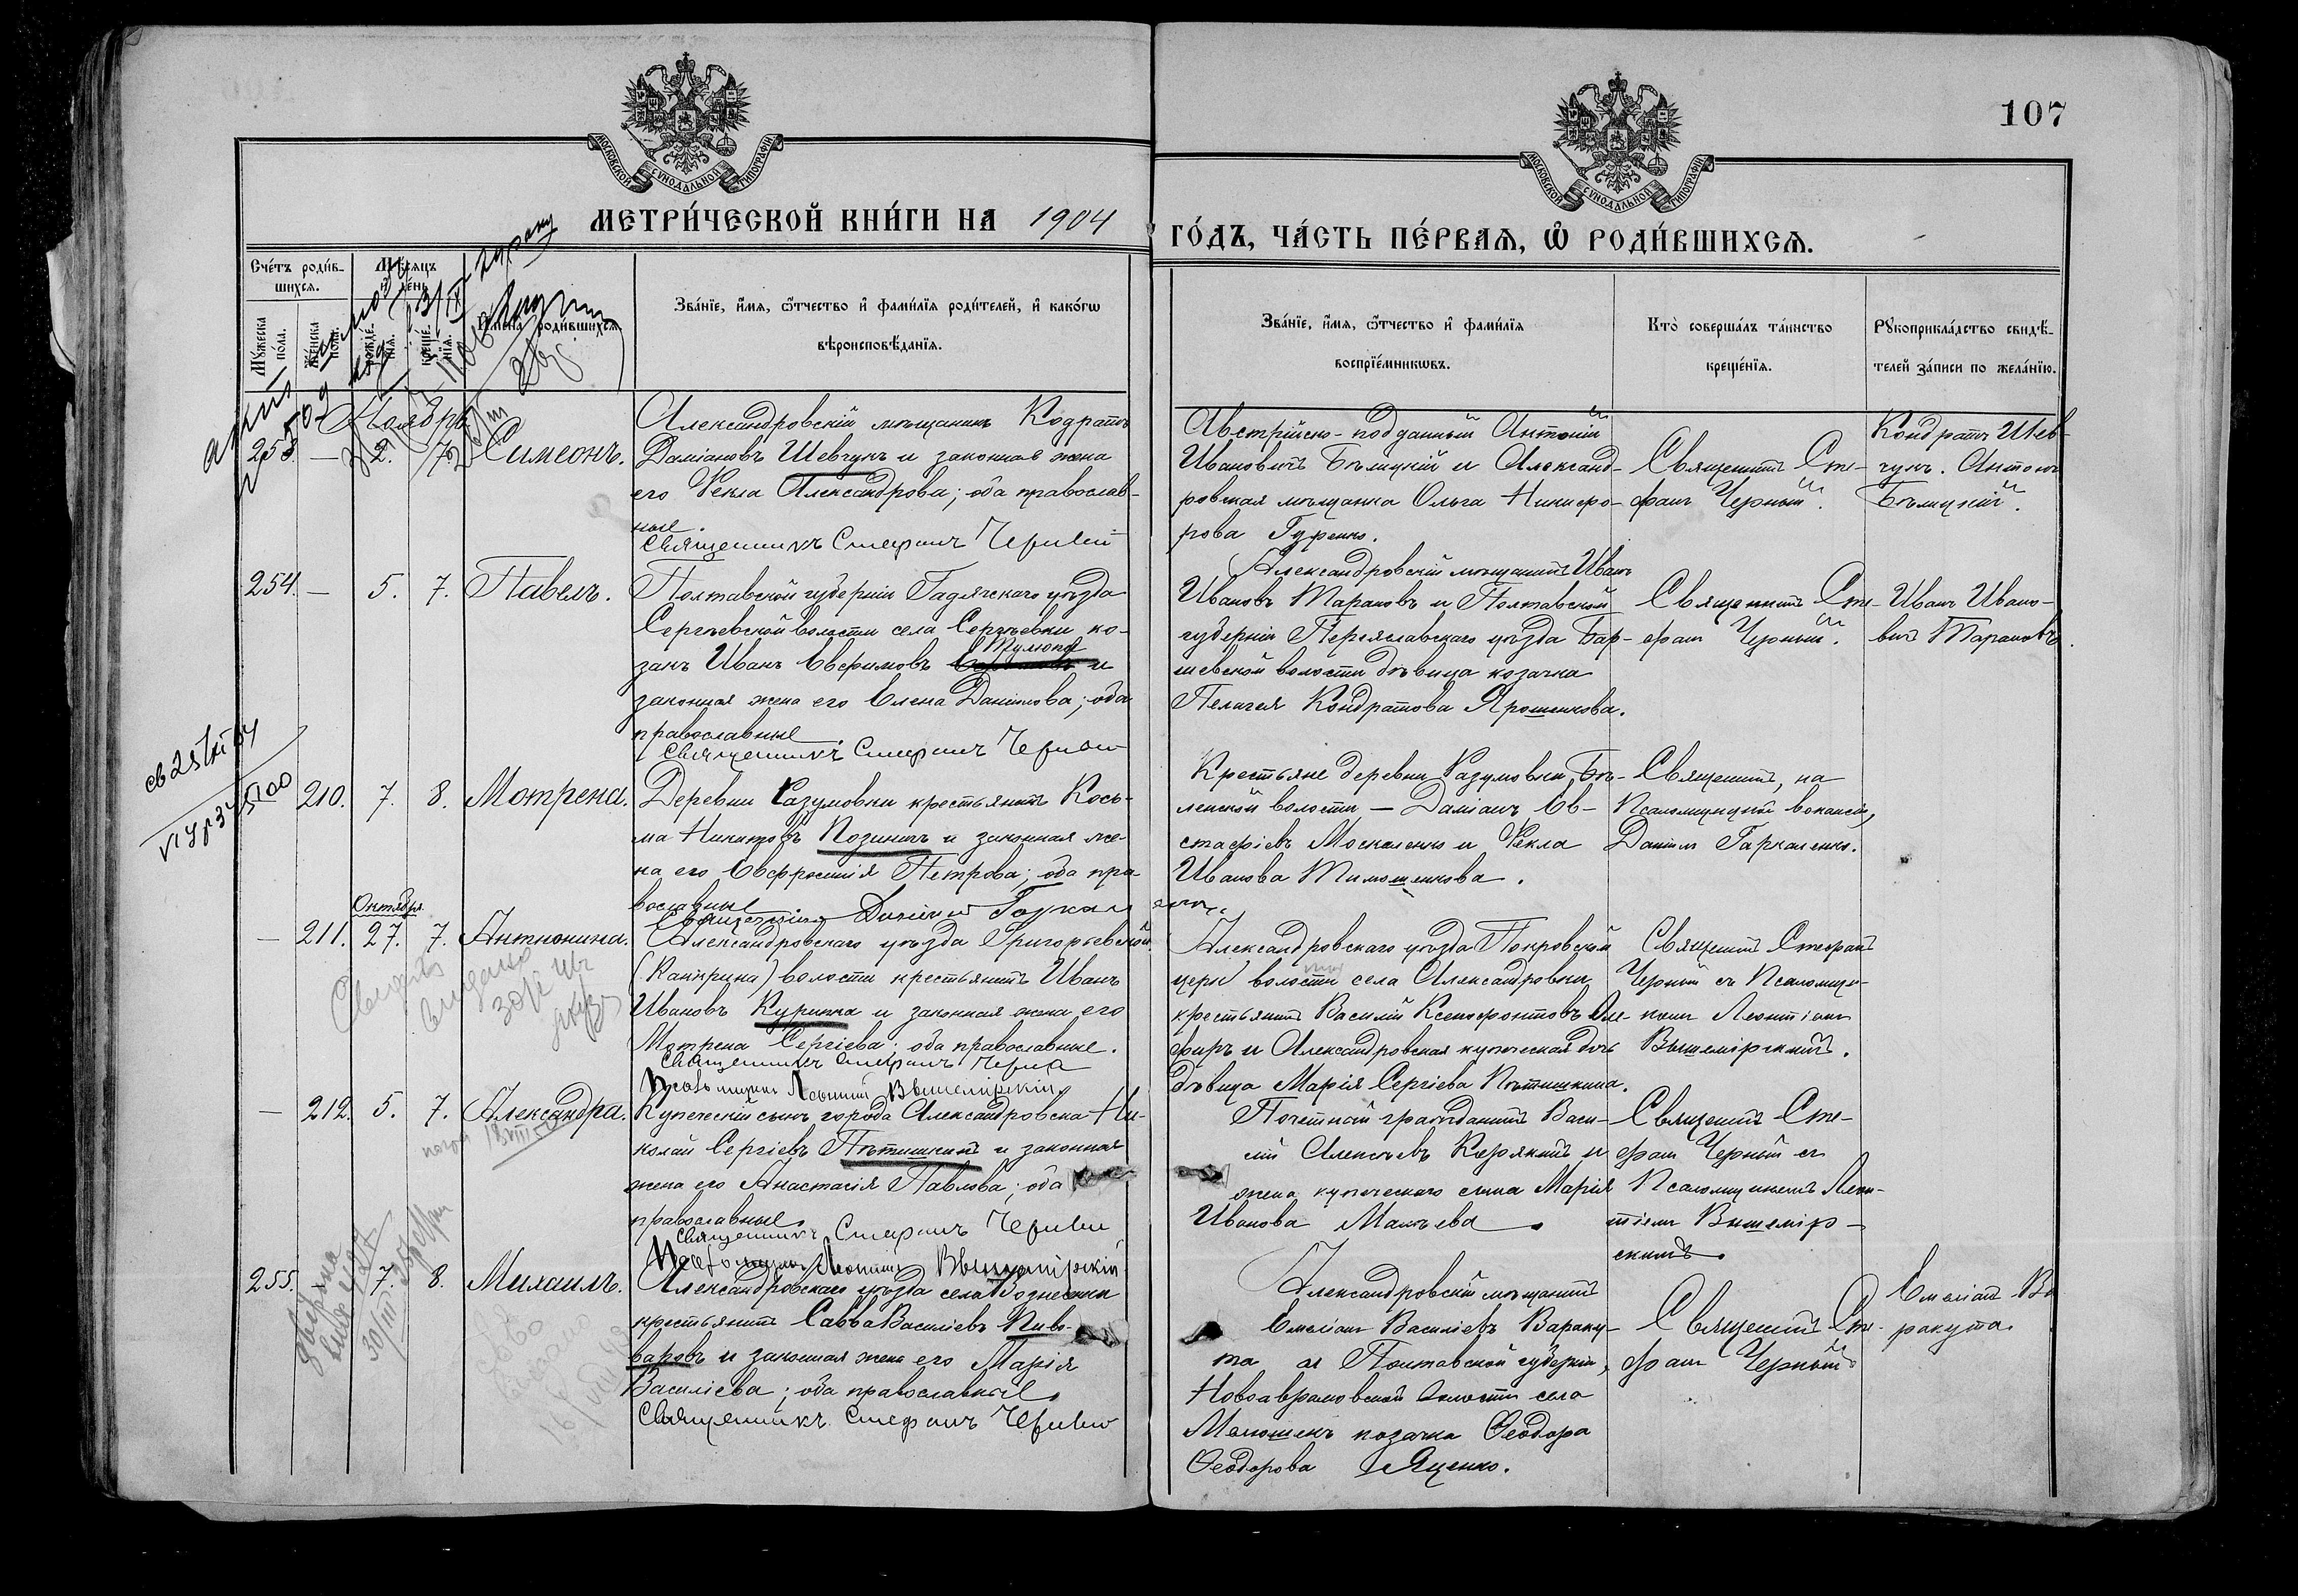 107
МОСКОВСКОЙ СѴНОДАЛЬНОЙ ТИПОГРАФІИ
МОСКОВСКОЙ СѴНОДАЛЬНОЙ ТИПОГРАФІИ
МЕТРИ́ЧЕСКОЙ КНИ́ГИ НА 1904
ГО́ДЪ, ЧА́СТЬ ПЕ́РВАЯ, Ѡ҆ РОДИ́ВШИХСЯ.
Сче́тъ роди́в-
шихся.
Мꙋ́жеска
по́ла.
Же́нска
пола.
Мѣ́сяцъ
и҆ день
рожде́-
нія.
креще́-
нія.
И҆мена̀ роди́вшихся.
Зва́нїе, и҆́мя, ѻ҆́тчество и҆ фами́лїя роди́телей, и҆ како́гѡ
вѣроисповѣ́данїя.
Зва́нїе, и҆́мя, ѻ҆́тчество и҆ фами́лїя
воспрїе́мникѡвъ.
Кто̀ соверша́лъ та́инство
креще́нїя.
Рꙋкоприкла́дство свидѣ́-
телей за́писи по жела́нїю.
Ноября
253. — 2. 7. Симеонъ.
Александровскій мѣщанинъ Кодратъ
Даміановъ Шевчукъ и законная жена
его Ѳекла Александрова; оба православ-
ные.
Священникъ Стефанъ Черный
Австрійско-подданный Антоній
Ивановичъ Бѣлицкій и Александ-
ровская мѣщанка Ольга Никифо-
рова Гуренко.
Священникъ Сте-
фанъ Черный.
Кондратъ Шев-
чукъ. Антонъ
Бѣлицкій.
254. — 5. 7. Павелъ.
Полтавской губерніи Гадячскаго уѣзда
Сергѣевской волости села Сергѣевки ко-
закъ Иванъ Евфимовъ и
законная жена его Елена Даніилова; оба
православные.
Священникъ Стефанъ Черный
Александровскій мѣщанинъ Иванъ
Ивановъ Тарановъ и Полтавской
губерніи Переяславскаго уѣзда Бар-
шевской волости дѣвица козачка
Пелагея Кондратова Ярошенкова.
Священникъ Сте-
фанъ Черный.
Иванъ Ивано-
вичъ Тарановъ.
210. 7. 8. Мотрена.
Деревни Разумовки крестьянинъ Кось-
ма Никитовъ Позиничъ и законная же-
на его Евфросинія Петрова; оба пра-
вославные.
Крестьяне деревни Разумовки, Бѣ-
ленской волости — Даміанъ Ев-
стафіевъ Москаленко и Ѳекла
Иванова Тимошенкова.
Священникъ, на
Псаломщицкой вакансіи,
Даніилъ Гаркаленко.
Октября
— 211. 27. 7. Антонина.
Александровскаго уѣзда Григорьевской
(Канкрина) волости крестьянинъ Иванъ
Ивановъ Курипка и законная жена его
Мотрена Сергіева; оба православные.
Священникъ Стефанъ Черный
Псаломщикъ Леонтій Вышемірскій
Александровскаго уѣзда Покровской
волости села Александровки
крестьянинъ Василій Ксенофонтовъ Оле-
фиръ и Александровская купеческая дочь
дѣвица Марія Сергіева Пѣтишкина.
Священникъ Стефанъ
Черный съ Псаломщи-
комъ Леонтіемъ
Вышемірскимъ.
— 212. 5. 7. Александра.
Купеческій сынъ города Александровска Ни-
колай Сергіевъ Пѣтишкинъ и законная
жена его Анастасія Павлова; оба
православные.
Священникъ Стефанъ Черный
Псаломщикъ Леонтій Вышемірскій
Почетный гражданинъ Васи-
лій Алексѣевъ Карякинъ и
жена купеческаго сына Марія
Иванова Макѣева.
Священникъ Сте-
фанъ Черный съ
Псаломщикомъ Леон-
тіемъ Вышемір-
скимъ.
255. 7. 8. Михаилъ.
Александровскаго уѣзда села Вознесенки
крестьянинъ Савва Василіевъ Пиво-
варовъ и законная жена его Марія
Василіева; оба православные.
Священникъ Стефанъ Черный
Александровскій мѣщанинъ
Емеліанъ Василіевъ Вараку-
та и Полтавской губерніи,
Новоаврамовской волости села
козачка Ѳеодора
Ѳеодорова Яценко.
Священникъ Сте-
фанъ Черный
Емеліанъ Ва
ракута.